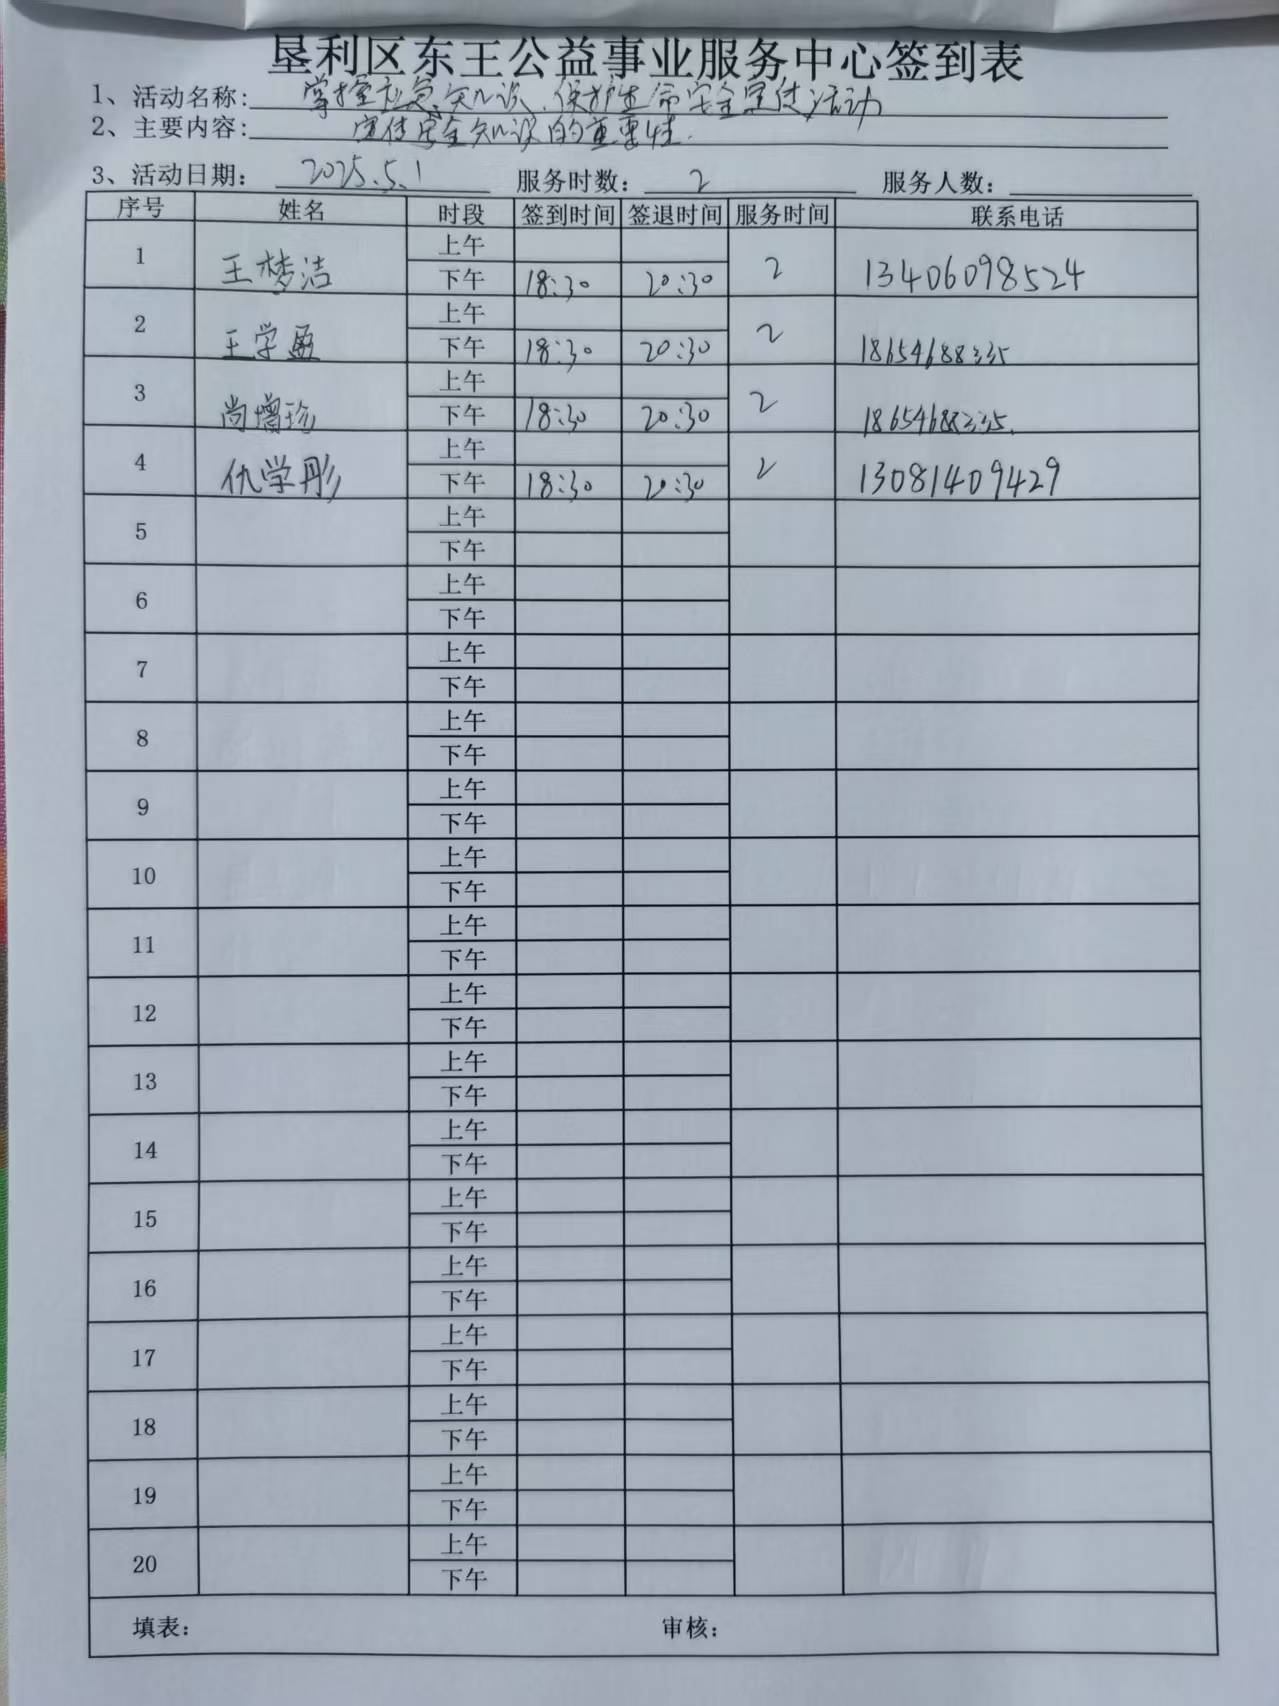 垦利区东王公益事业服务中心签到表
1、活动名称: 掌握应急知识、保护生命安全宣传活动
2、主要内容: 宣传安全知识的重要性.
3、活动日期: 2025.5.1 服务时数: 2 服务人数:
序号 姓名 时段 签到时间 签退时间 服务时间 联系电话
上午
1 王梦洁 2 13406098524
下午 18:30 20:30
上午
2 王学盈 2 18654688335
下午 18:30 20:30
上午
3 尚增珍 2 18654688335.
下午 18:30 20:30
上午
4 仇学彤 2 13081409429
下午 18:30 20:30
上午
5
下午
上午
6
下午
上午
7
下午
上午
8
下午
上午
9
下午
上午
10
下午
上午
11
下午
上午
12
下午
上午
13
下午
上午
14
下午
上午
15
下午
上午
16
下午
上午
17
下午
上午
18
下午
上午
19
下午
上午
20
下午
填表: 审核: